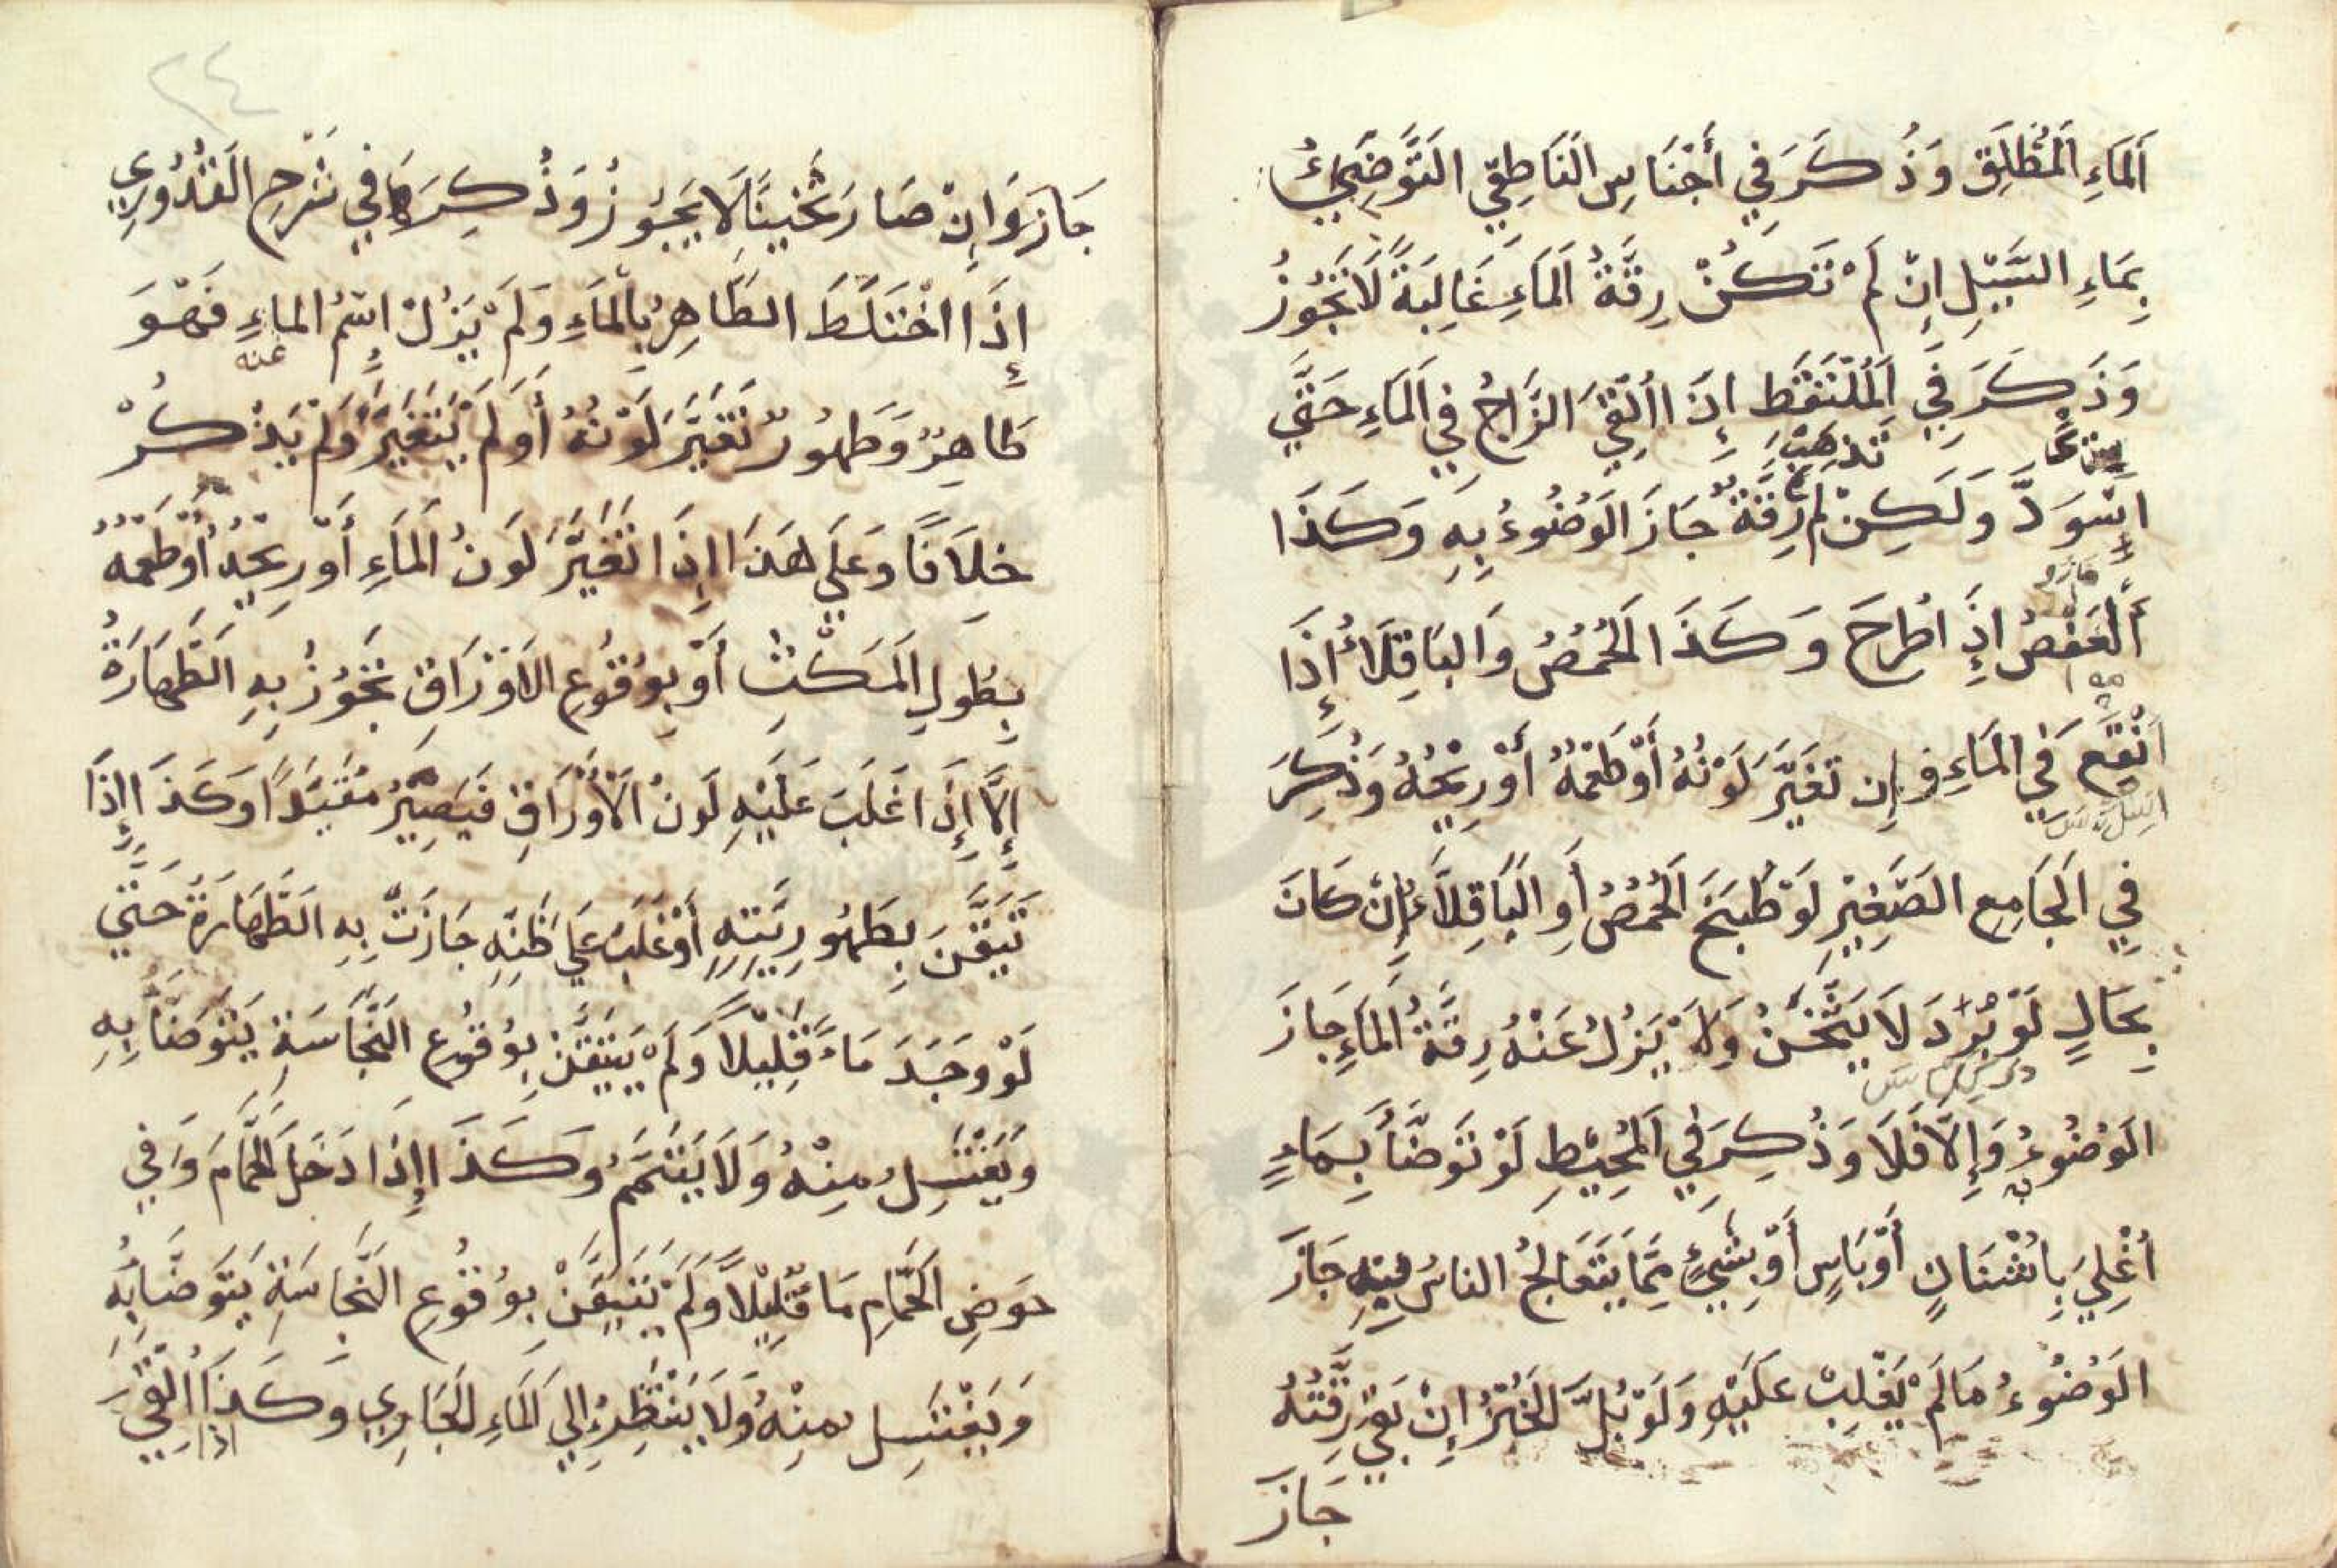 اَلْمَاءِ اَلْمُطْلَقِ وَذُكَرَ فِي أَجْنَاسِ النَّاطِفِي التَّوَضِّيُ
بِمَاءِ السَّيْلِ اِنْ لَمْ تَكُنْ رِقَّةُ اَلْمَاءِ غَالِبَةً لَا تَجُوزُ
وَذَكَرَ فِي اَلْمُلْتَقَطِ إِذَا اُلْقِيَ الزَّاجُ فِي اَلْمَاءِ حَتَّي
اِسْوَدَّ وَلَكِنْ لَمْ تَذْهَبْ رِقَّةُ جَازَ الْوَضُوءُ بِهِ وَكَذَا
اَلْعَفْصُ اِذَا طُرِحَ وَكَذَا الْحُمُّصُ وَالْبَاقِلَاءُ إِذَا
اُنْقِعَ فِي الْمَاءِ وَ إِنْ تَغَيَّرَ لَوْنُهُ أَوْ طَعْمُهُ أَوْ رِيحُهُ وَذُكِرَ
فِي اَلْجَامِعِ الصَّغِيْرِ لَوْ طُبِخَ اَلْحُمُّصُ أَوِ الْبَاقِلَاءُ إِنْ كَانَ
بِحَالٍ لَوْ بُرِّدَ لَا يَثْخُنُ وَلَا يَزُلُ عَنْهُ رِقَّةُ الْمَاءِ جَازَ
الْوُضُوءُ بِهِ وَإِلَّا فَلَا وَذُكِرَ فِي اَلْمُحِيْطِ لَوْ تَوَضَّأَ بِمَاءٍ
أُغْلِيَ بِاُشْنَانٍ أَوْ بَاسٍ أَوْ بِشَيْءٍ مِمَّا يَتَعَالَجُ النَّاسُ بِهِ جَازَ
الْوُضُوءُ مَا لَمْ يَغْلِبْ عَلَيْهِ وَلَوْ بُلَّ الْخُبْزُ اِنْ بَقِيَ رِقَّتُهُ
جَازَ
٢٤
جَازَ وَاِنْ صَارَ ثَخِينًا لَا يَجُوزُ وَذُكِرَ فِي شَرْحِ الْقُدُورِي
إِذَا اخْتَلَطَ الطَّاهِرُ بِالْمَاءِ وَلَمْ يَزُلْ اِسْمُ الْمَاءِ عَنْهُ فَهُوَ
طَاهِرٌ وَطَهُورٌ تَغَيَّرَ لَوْنُهُ أَوْ لَمْ يَتَغَيَّرْ وَلَمْ يَذْكُرْ
خِلَافًا وَعَلَي هَذَا اِذَا تَغَيَّرَ لَوْنُ اَلْمَاءِ أَوْ رِيحُهُ أَوْ طَعْمُهُ
بِطُولِ اَلْمَكْثِ أَوْ بِوُقُوعِ الْاَوْرَاقِ تَجُوزُ بِهِ الطَّهَارَةُ
إِلَّا إِذَا غَلَبَ عَلَيْهِ لَوْنُ الْأَوْرَاقِ فَيَصِيْرُ مُقَيَّدًا وَكَذَا إِذَا
تَيَقَّنَ بِطَهُورِيَّتِهِ أَوْ غَلَبَ عَلَي ظَنِّهِ جَازَتْ بِهِ الطَّهَارَةُ حَتَّي
لَوْ وَجَدَ مَاءً قَلِيلًا وَلَمْ يَتَيَقَّنْ بِوُقُوعِ النَّجَاسَةِ يَتَوَضَّأُ بِهِ
وَيَغْتَسِلُ مِنْهُ وَلَا يَتَيَمَّمُ وَكَذَا اِذَا دَخَلَ الْحَمَّامَ وَفِي
حَوْضِ الْحَمَّامِ مَا قَلِيْلًا وَلَمْ يَتَيَقَّنْ بِوُقُوعِ النَّجَاسَةِ يَتَوَضَّا بِهِ
وَيَغْتَسِلُ مِنْهُ وَلَا يَنْتَظِرُ إِلَي اَلْمَاءِ الْجَارِي وَكَذَا اِذَا اُلْقِيَ